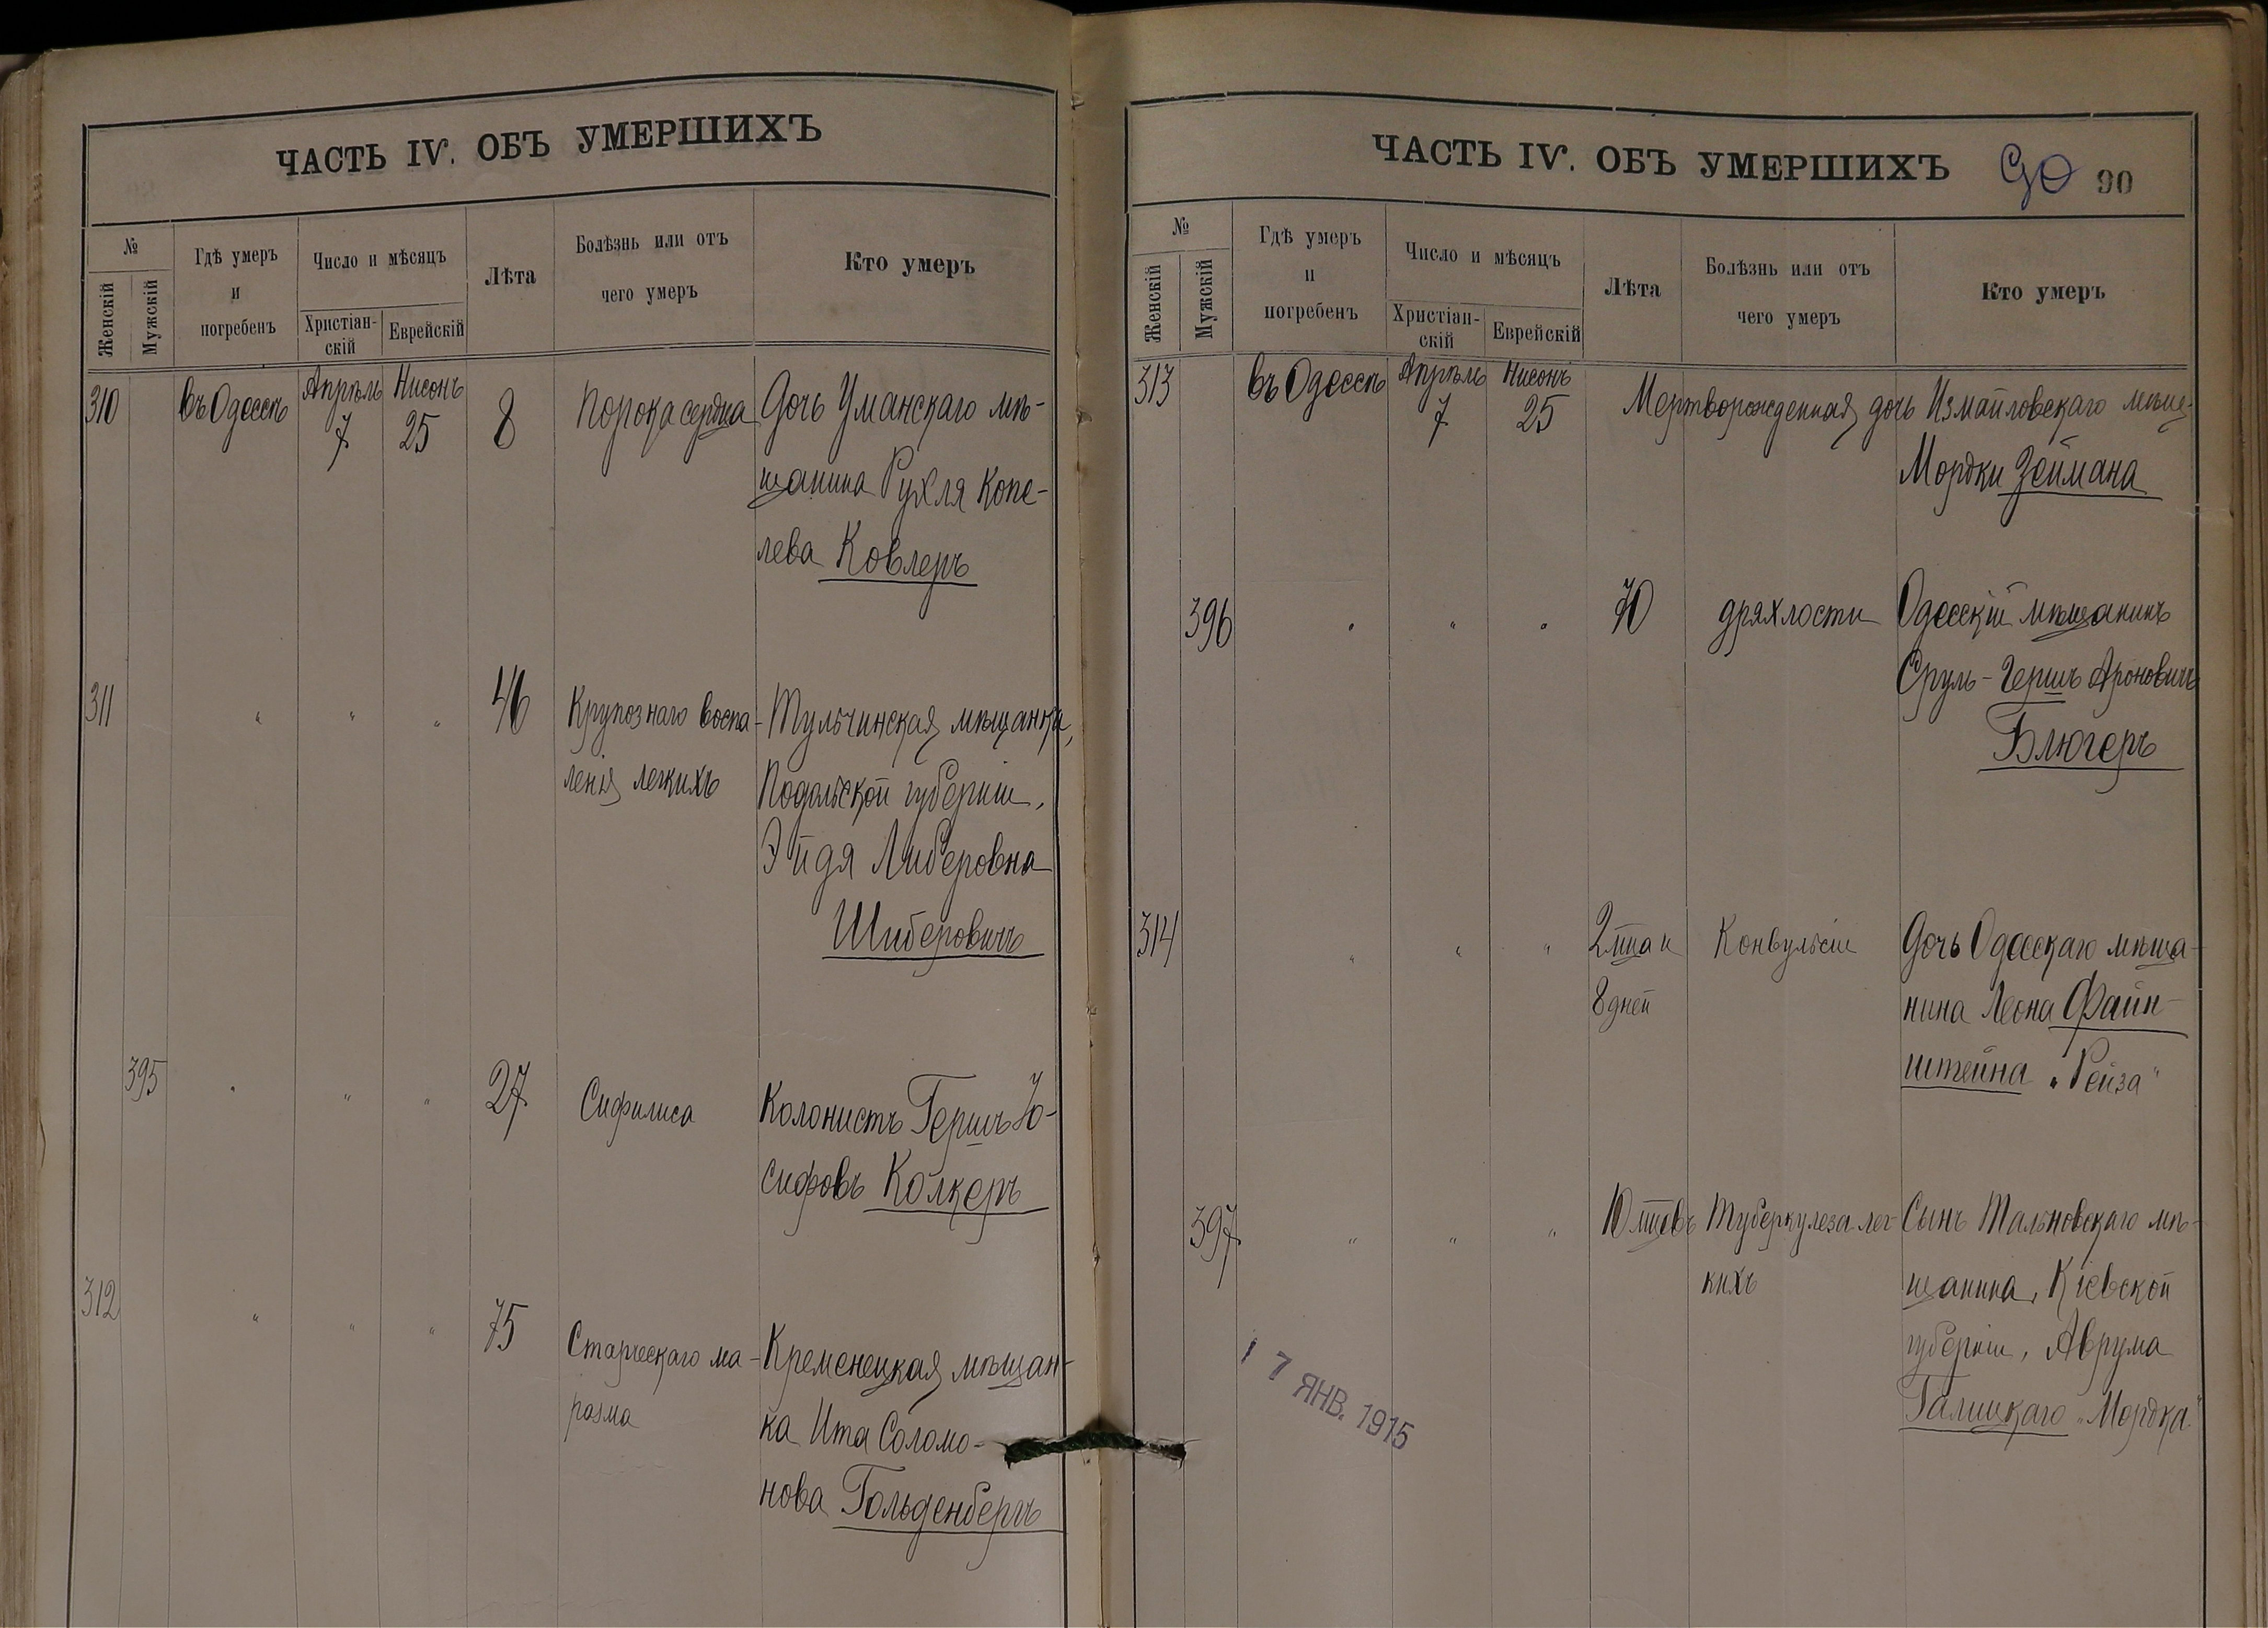 ЧАСТЬ IV. ОБЪ УМЕРШИХЪ
№
Женскій
Мужскій
Гдѣ умеръ
и
погребенъ
Число и мѣсяцъ
Христіан-
скій
Еврейскій
Лѣта
Болѣзнь или отъ
чего умеръ
Кто умеръ
310 въ Одессѣ Апрѣль 7 Нисонъ 25 8 Порока сердца Дочь Уманскаго мѣ-
щанина Рухля Копе-
лева Ковлеръ
311 " " " 46 Крупознаго воспа- Тульчинская мѣщанка,
ленія легкихъ Подольской губерніи,
Эйдя Либеровна
Шиберовичъ
395 " " " 27 Сифилиса Колонистъ Гершъ Іо-
сифовъ Колкеръ
312 " " " 75 Старческаго ма- Кременецкая мѣщан-
разма ка Ита Соломо-
нова Гольденбергъ
ЧАСТЬ IV. ОБЪ УМЕРШИХЪ 90 90
№
Женскій
Мужскій
Гдѣ умеръ
и
погребенъ
Число и мѣсяцъ
Христіан-
скій
Еврейскій
Лѣта
Болѣзнь или отъ
чего умеръ
Кто умеръ
313 въ Одессѣ Апрѣль 7 Нисонъ 25 Мертворожденная дочь Измаиловскаго мѣщ.
Мордки Зеймана
396 " " " 70 дряхлости Одесскій мѣщанинъ
Сруль-Гершъ Ароновичъ
Блюгеръ
314 " " " 2 мца и Конвульсіи Дочь Одесскаго мѣща-
8 дней нина Леона Файн-
штейна „Рейза"
397 " " " 10 мцевъ Туберкулеза лег- Сынъ Тальновскаго мѣ-
кихъ щанина, Кіевской
губерніи, Аврума
Галицкаго „Мордка"
17 ЯНВ. 1915